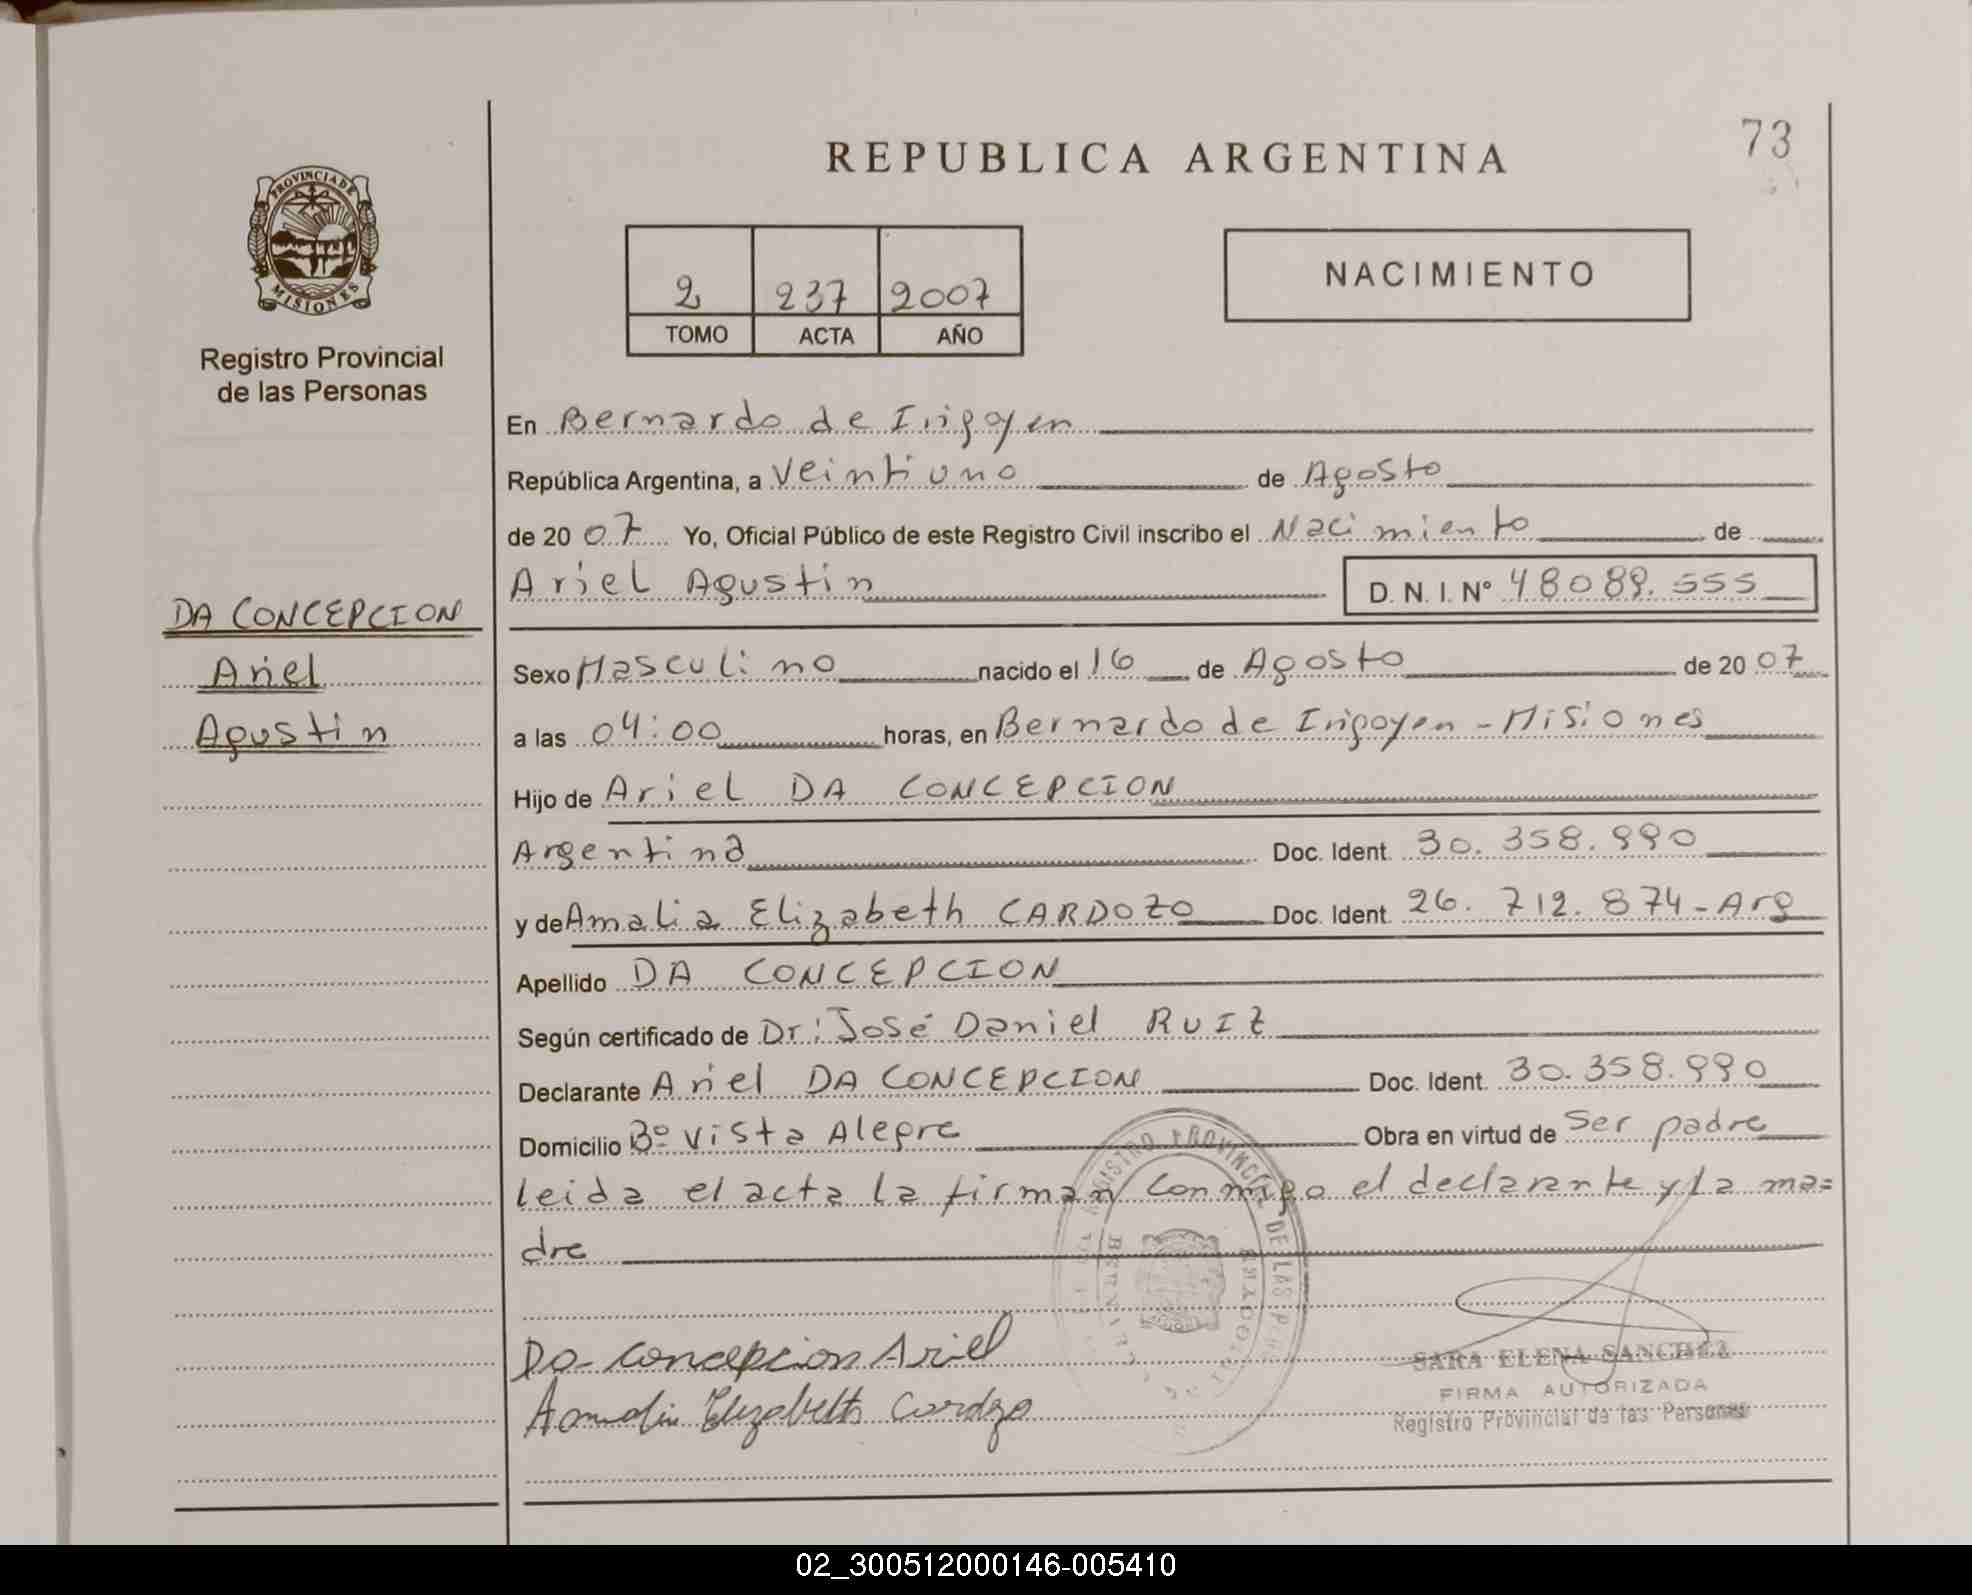 73
REPUBLICA ARGENTINA
PROVINCIA DE
MISIONES
Registro Provincial
de las Personas
2 237 2007
TOMO ACTA AÑO
NACIMIENTO
DA CONCEPCION
Ariel
Agustin
En Bernardo de Irigoyen
República Argentina, a Veintiuno de Agosto
de 2007 Yo, Oficial Público de este Registro Civil inscribo el Nacimiento de
Ariel Agustin D. N. I. Nº 48089.555
Sexo Masculino nacido el 16 de Agosto de 2007
a las 04:00 horas, en Bernardo de Irigoyen - Misiones
Hijo de Ariel DA CONCEPCION
Argentina Doc. Ident. 30.358.990
y de Amalia Elizabeth CARDOZO Doc. Ident. 26.712.874-Arg
Apellido DA CONCEPCION
Según certificado de Dr: José Daniel RUIZ
Declarante Ariel DA CONCEPCION Doc. Ident. 30.358.990
Domicilio Bº Vista Alegre Obra en virtud de Ser padre
leida el acta la firman conmigo el declarante y la ma=
dre
REGISTRO PROVINCIAL DE LAS
Da Concepcion Ariel
Amalia Elizabeth Cardozo
SARA ELENA SANCHEZ
FIRMA AUTORIZADA
Registro Provincial de las Personas
02_300512000146-005410